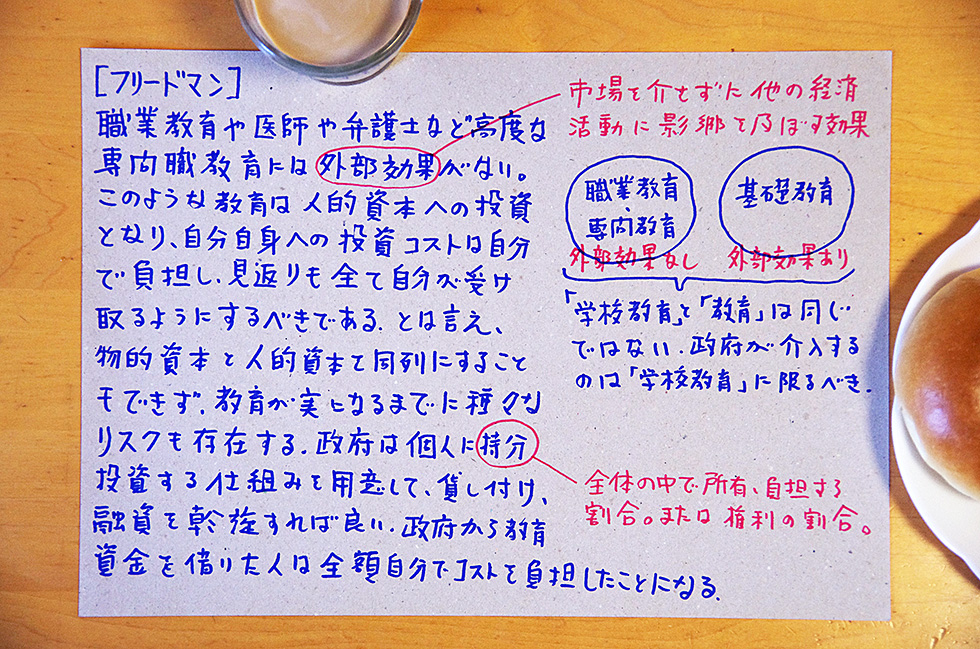 [フリードマン]
職業教育や医師や弁護士など高度な
専門職教育には外部効果がない。
このような教育は人的資本への投資
となり、自分自身への投資コストは自分
で負担し、見返りも全て自分が受け
取るようにするべきである。とは言え、
物的資本と人的資本を同列にすること
もできず、教育が実になるまでに種々な
リスクも存在する。政府は個人に持分
投資する仕組みを用意して、貸し付け、
融資を斡旋すれば良い。政府から教育
資金を借りた人は全額自分でコストを負担したことになる。
市場を介せずに他の経済
活動に影響を及ぼす効果
職業教育、
専門教育
外部効果なし
基礎教育
外部効果あり
「学校教育」と「教育」は同じ
ではない。政府が介入する
のは「学校教育」に限るべき。
全体の中で所有、負担する
割合。または権利の割合。